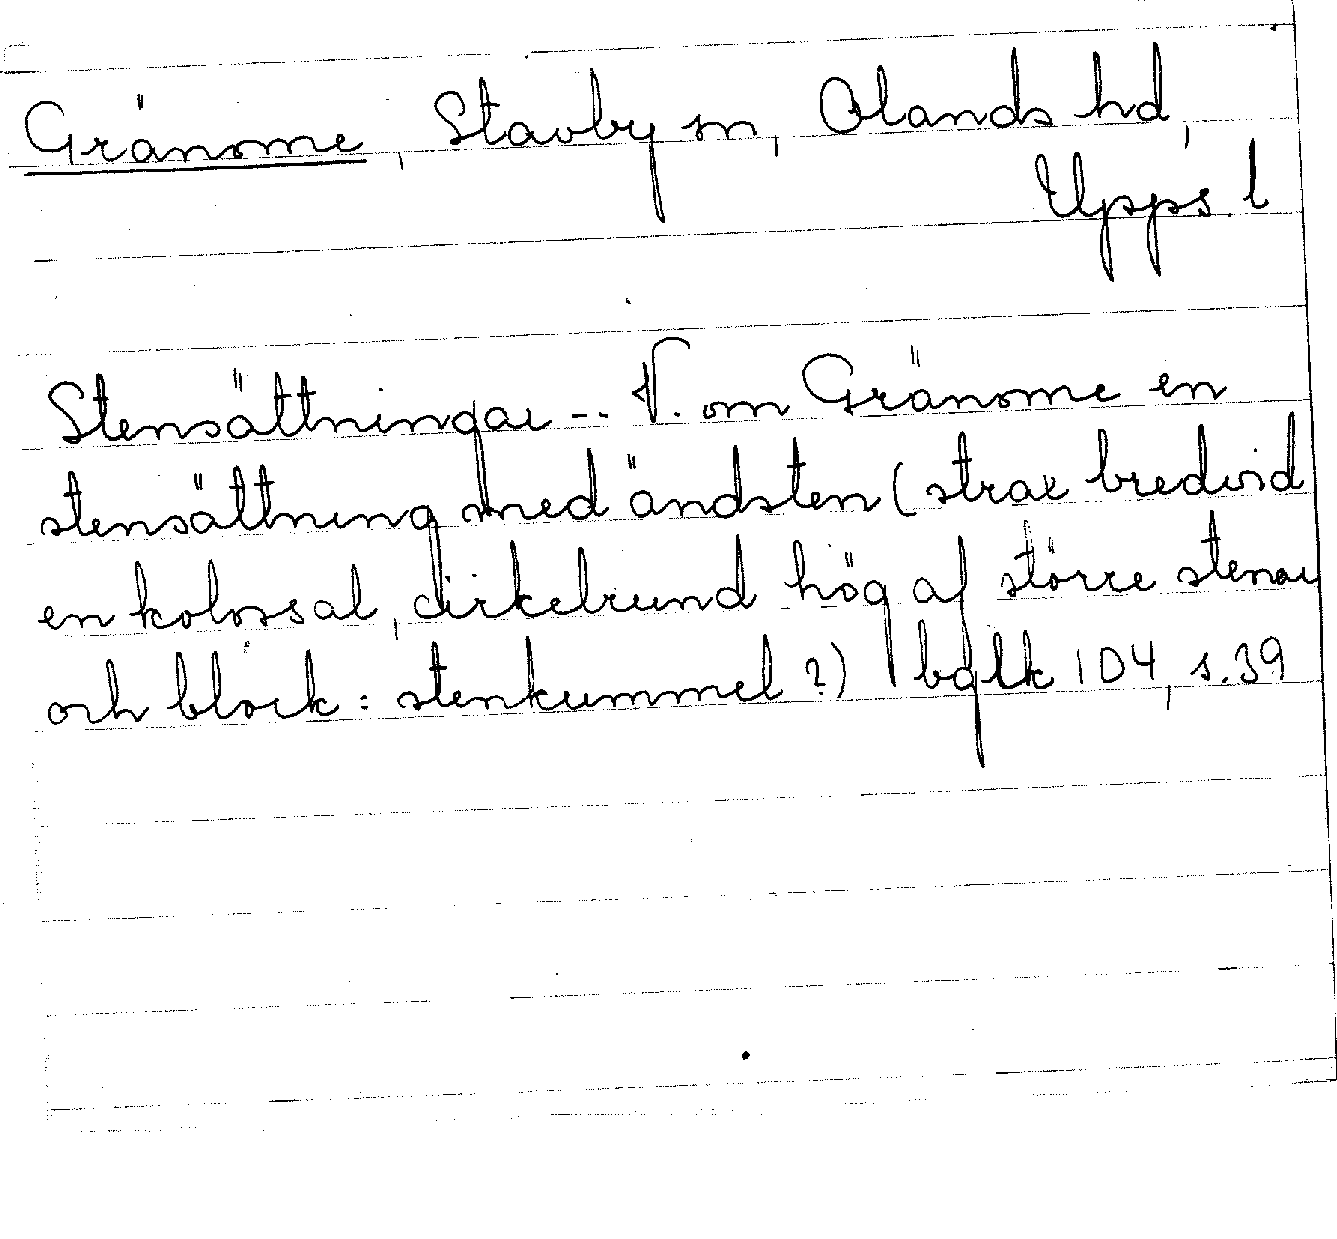 Gränome, Stavby sn, Olands hd,
Upps. l
Stensättningar -- V. om Gränome en
stensättning med ändsten (strax bredvid
en kolossal, cirkelrund hög af större stenar
och block: stenkummel?) bglk 104, s. 39